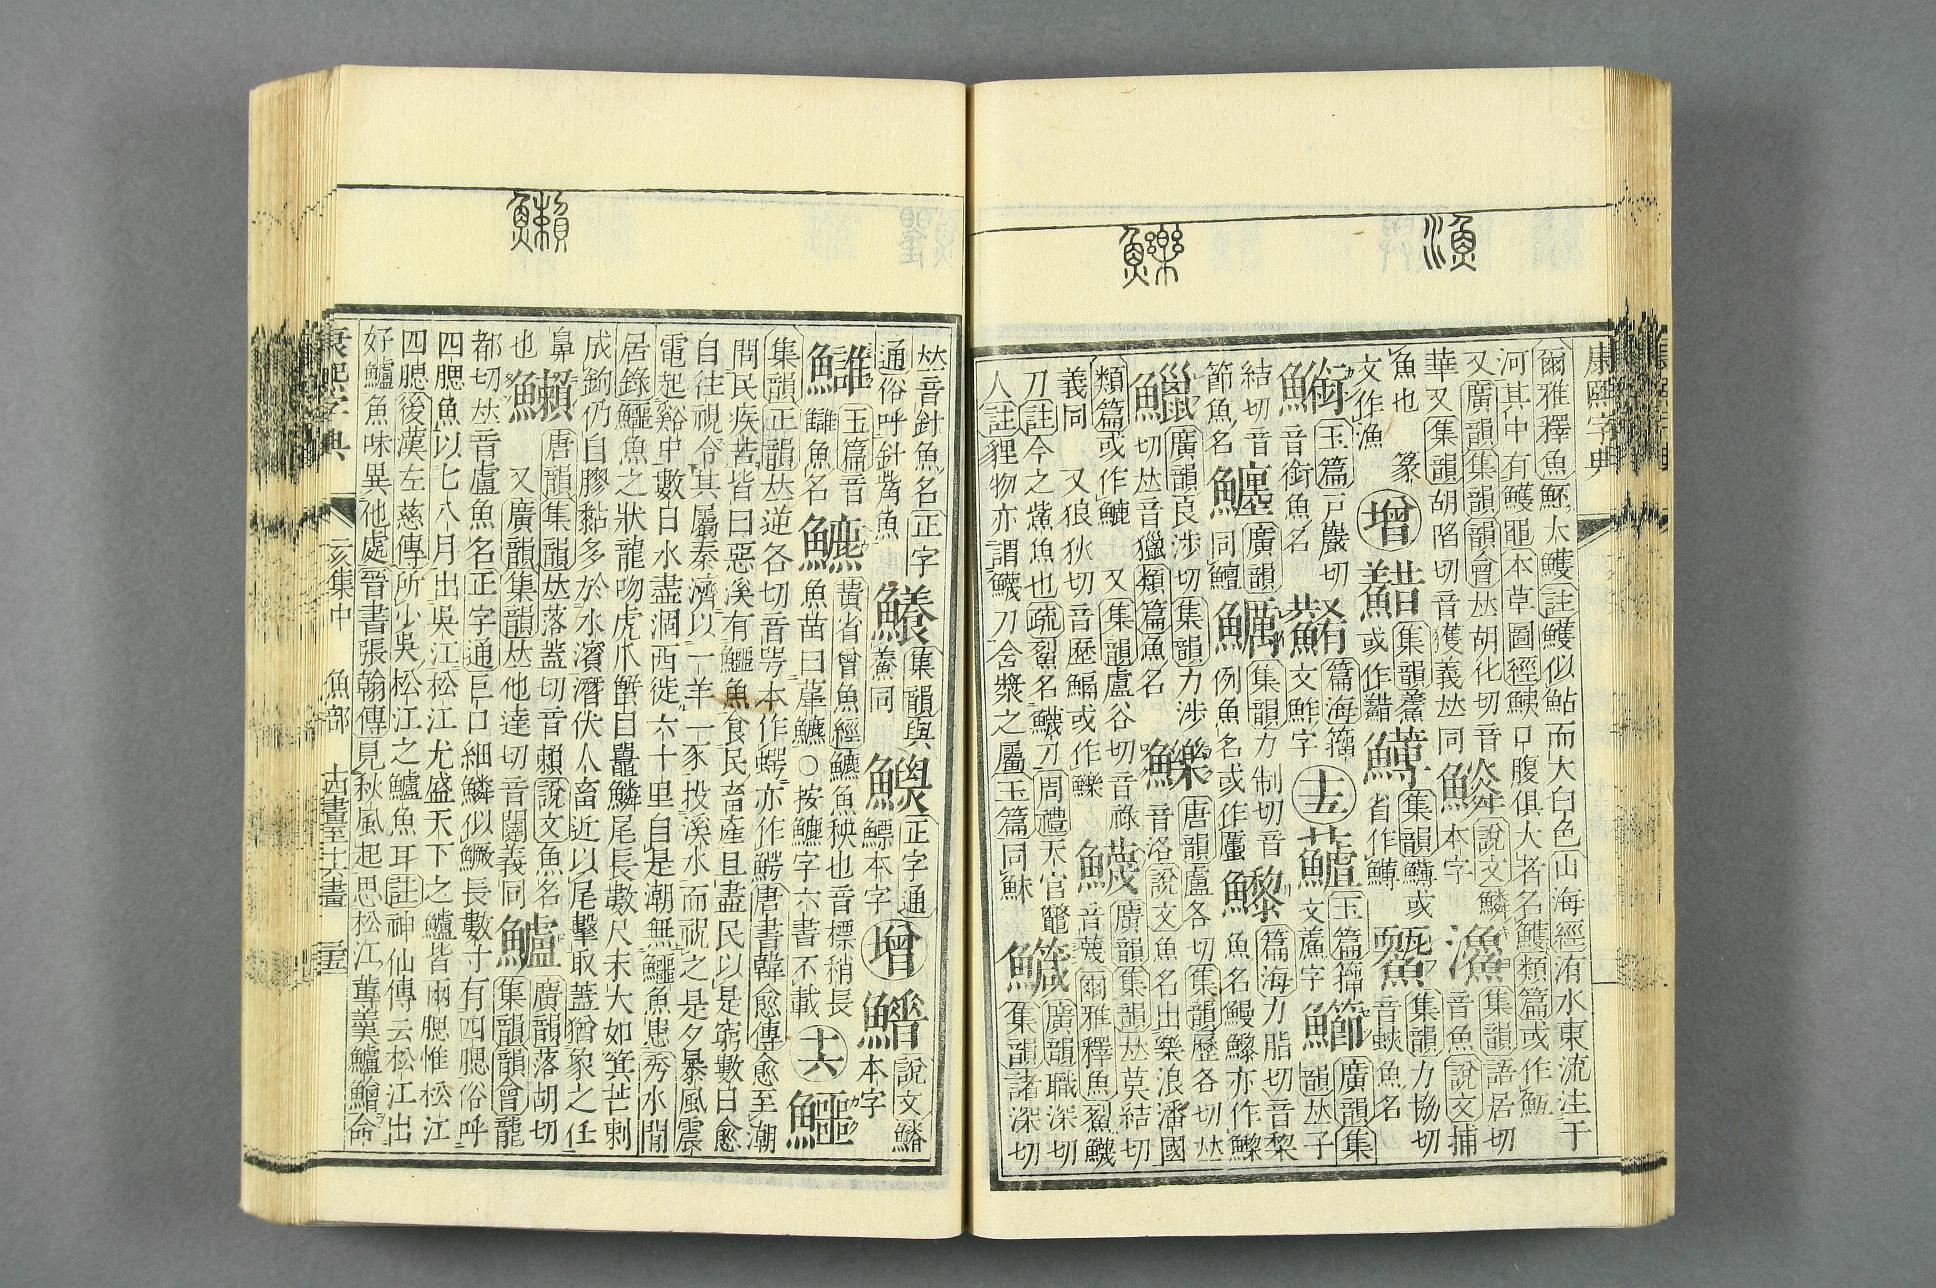 漁
鱳
康熙字典
爾雅釋魚魾大鱯註鱯似鮎而大白色山海經洧水東流注于
河其中有鱯黽本草圖經鮧口腹俱大者名鱯類篇或作
又廣韻集韻韻會𠀤胡化切音 說文鱗 漁 集韻語居切
華又集韻胡陷切音獲義𠀤同 本字 音魚說文捕
魚也 篆 增 集韻鮺 集韻鱄或 集韻力協切
文作漁 或作 省作鱄 音蛺魚名
玉篇戸嚴切 篇海籀 十五 玉篇籀 鰤 廣韻集
音銜魚名 文鮓字 文鮺字 韻𠀤子
結切音 鱣 廣韻 鱱 集韻力制切音 篇海力脂切音黎
節魚名 同鱣 例魚名或作 魚名鰻鱺亦作
鱲 廣韻良涉切集韻力涉 鱳 唐韻盧各切集韻歷各切𠀤
切𠀤音獵類篇魚名 音洛說文魚名出樂浪潘國
類篇或作 又集韻盧谷切音祿 鱴 廣韻集韻𠀤莫結切
義同 又狼狄切音歷 或作鱳 音蔑爾雅釋魚鮤鱴
刀註今之鮆魚也疏鮤名鱴刀周禮天官鼈 鱵 廣韻職深切
人註貍物亦謂鱴刀含漿之屬玉篇同䱅 集韻諸深切
𠀤音針魚名正字 鱶 集韻與 正字通 增 說文鱗
通俗呼針觜魚 鮝同 鰾本字 本字
玉篇音 鱺 蕡省曾魚經鱺魚秧也音標稍長 十六 鱷
魚名 魚苗曰 ○按 字六書不載
集韻正韻𠀤逆各切音咢本作蝷亦作鰐唐書韓愈傳愈至潮
問民疾苦皆曰惡溪有鱷魚食民畜產且盡民以是窮數日愈
自往視令其屬秦濟以一羊一豕投溪水而祝之是夕暴風震
電起谿中數日水盡涸西徙六十里自是潮無鱷魚患秀水閒
居錄鱷魚之狀龍吻虎爪蟹目鼉鱗尾長數尺末大如箕芒刺
成鉤仍自膠黏多於水濱潛伏人畜近以尾擊取蓋猶象之任
鼻 唐韻集韻𠀤落蓋切音賴說文魚名 鱸 廣韻落胡切
也 又廣韻集韻𠀤他達切音闥義同 集韻韻會龍
都切𠀤音盧魚名正字通巨口細鱗似鱖長數寸有四腮俗呼
四腮魚以七八月出吳江松江尤盛天下之鱸皆兩腮惟松江
四腮後漢左慈傳所少吳松江之鱸魚耳註神仙傳云松江出
好鱸魚味異他處晉書張翰傳見秋風起思松江蓴羹鱸鱠命
康熙字典
亥集中
魚部
十五畫至十六畫
三五